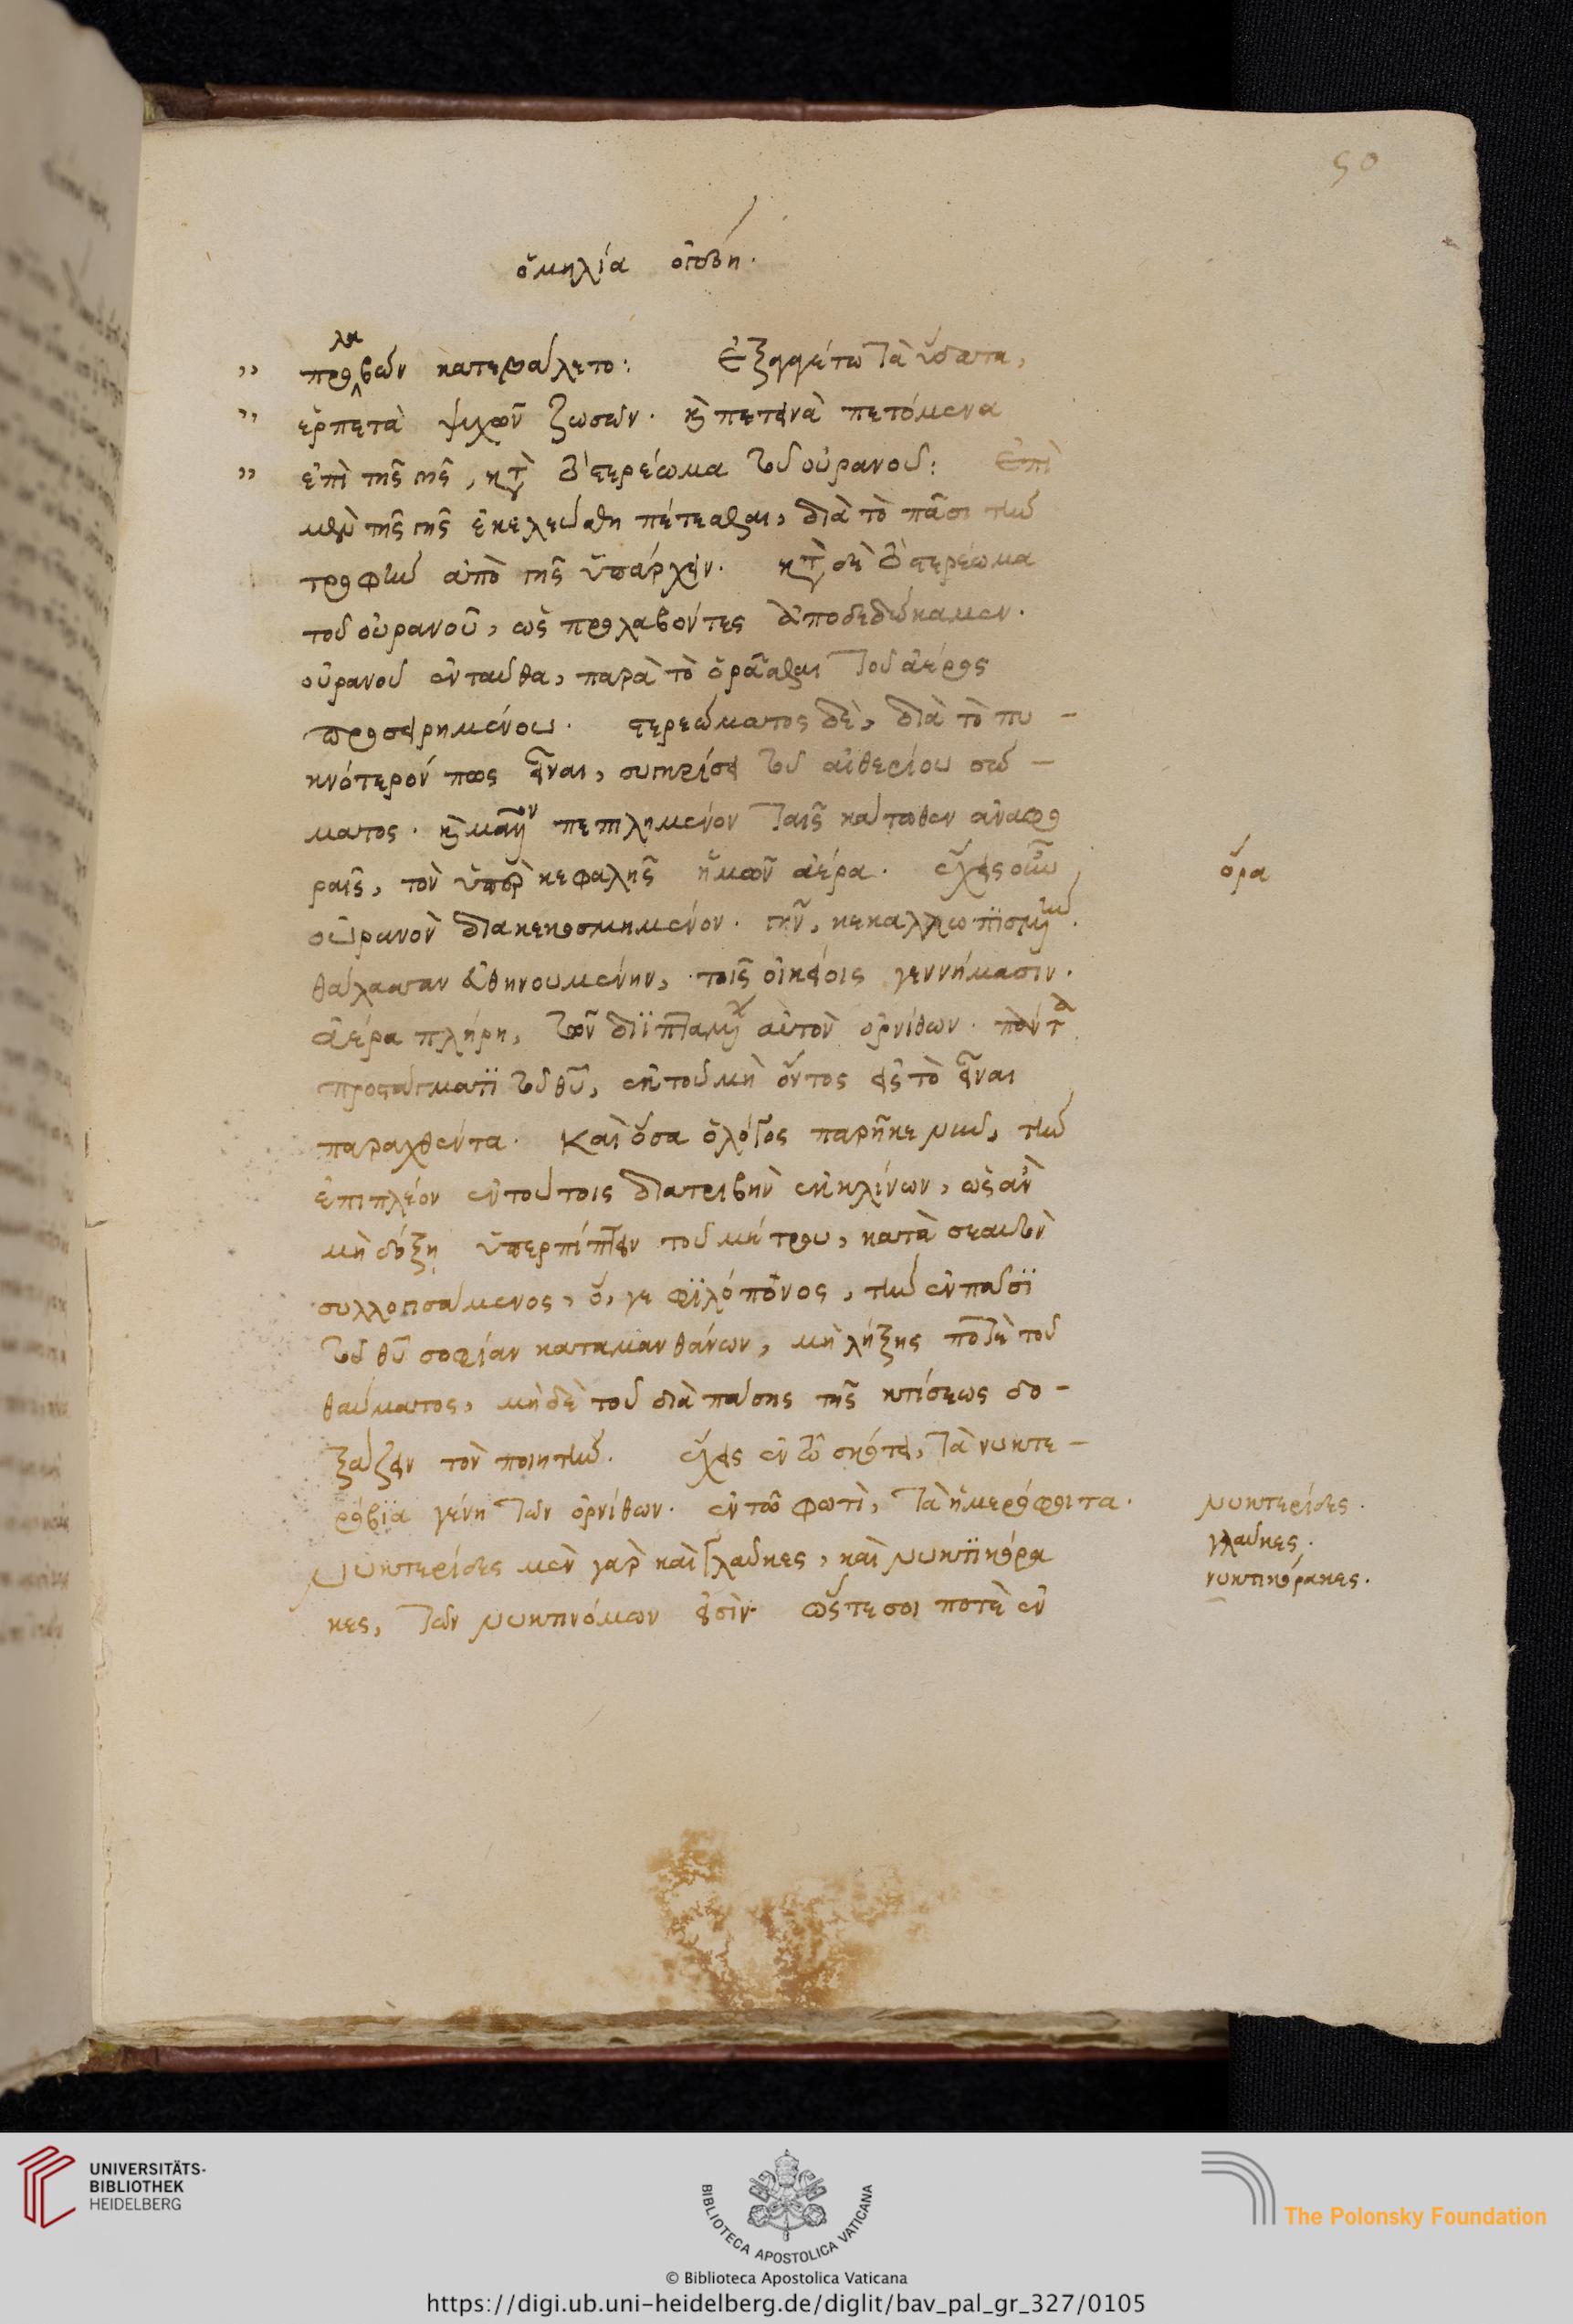 50
ὁμηλία ὀγδόη.
προλαβὼν κατεβάλετο: Ἐξαγαγέτω τὰ ὕδατα,
ἑρπετὰ ψυχῶν ζωσῶν. καὶ πετεινὰ πετόμενα
ἐπὶ τῆς γῆς, κατὰ τὸ στερέωμα τοῦ οὐρανοῦ: Ἐπὶ
μὲν τῆς γῆς ἐκελεύσθη πέτεσθαι, διὰ τὸ πᾶσι τὴν
τροφὴν ἀπὸ γῆς ὑπάρχειν. κατὰ δὲ τὸ στερέωμα
τοῦ οὐρανοῦ, ὡς προλαβόντες ἀποδεδώκαμεν.
οὐρανοῦ ἐνταῦθα, παρὰ τὸ ὁρᾶσθαι τοῦ ἀέρος
προσειρημένου. στερεώματος δὲ, διὰ τὸ πυ-
κνότερόν πως εἶναι, συγκρίσει τοῦ αἰθερίου σώ-
ματος. καὶ μᾶλλον πεπιλημένον ταῖς κάτωθεν ἀναφο
ραῖς, τὸν ὑπὲρ κεφαλῆς ἡμῶν ἀέρα. ἔχεις οὖν
οὐρανὸν διακεκοσμημένον. γῆν, κεκαλλωπϊσμένην.
θάλασσαν εὐθηνουμένην, τοῖς οἰκείοις γεννήμασιν.
ἀέρα πλήρη, τῶν διϊπταμένων αὐτὸν ὀρνίθων. πάντα
προστάγματϊ τοῦ θῦ, ἐκ τοῦ μὴ ὄντος εἰς τὸ εἶναι
παραχθέντα. Καὶ ὅσα ὁ λόγος παρῆκε νῦν, τὴν
ἐπιπλέον ἐν τούτοις διατριβὴν ἐκκλίνων, ὡς ἂν
μὴ δόξῃ ὑπερπίπτειν τοῦ μέτρου, κατὰ σεαυτὸν
συλλογισάμενος, ὅ, γε φϊλόπονος, τὴν ἐν πᾶσϊ
τοῦ θῦ σοφίαν καταμανθάνων, μὴ λήξῃς ποτὲ τοῦ
θαύματος, μηδὲ τοῦ διὰ πάσης τῆς κτίσεως δο-
ξάζειν τὸν ποιητήν. ἔχεις ἐν τῶ σκότει, τὰ νυκτε-
ρόβϊα γένη τῶν ὀρνίθων. ἐν τῶ φωτὶ, τὰ ἡμερόφοιτα.
νυκτερίδες μὲν γὰρ καὶ γλαῦκες, καὶ νυκτϊκόρα
κες, τῶν νυκτινόμων εἰσὶν. ὥστε σοι ποτὲ ἐν
ὅρα
νυκτερίδες.
γλαῦκες.
νυκτικόρακες.
UNIVERSITÄTS-
BIBLIOTHEK
HEIDELBERG
BIBLIOTECA APOSTOLICA VATICANA
The Polonsky Foundation
© Biblioteca Apostolica Vaticana
https://digi.ub.uni-heidelberg.de/diglit/bav_pal_gr_327/0105